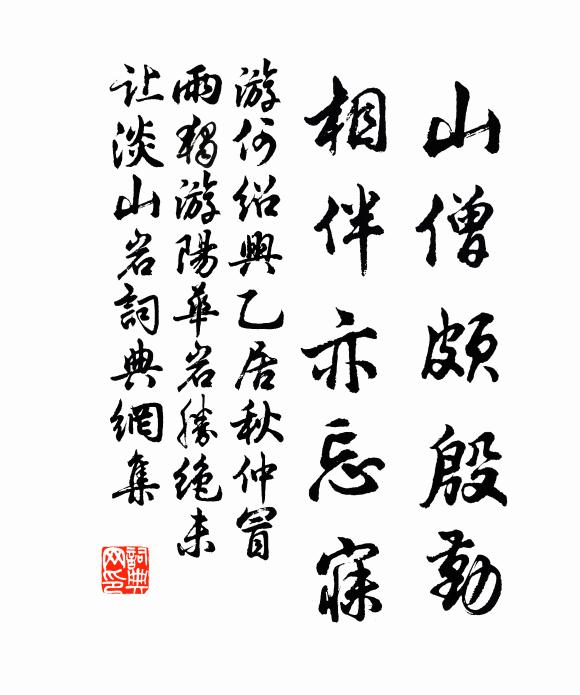 山僧頗殷勤
相伴亦忘寐
游何紹興乙居秋仲冒
雨獨游陽華岩勝絕未
让淡山岩詞典網集
詞典网印